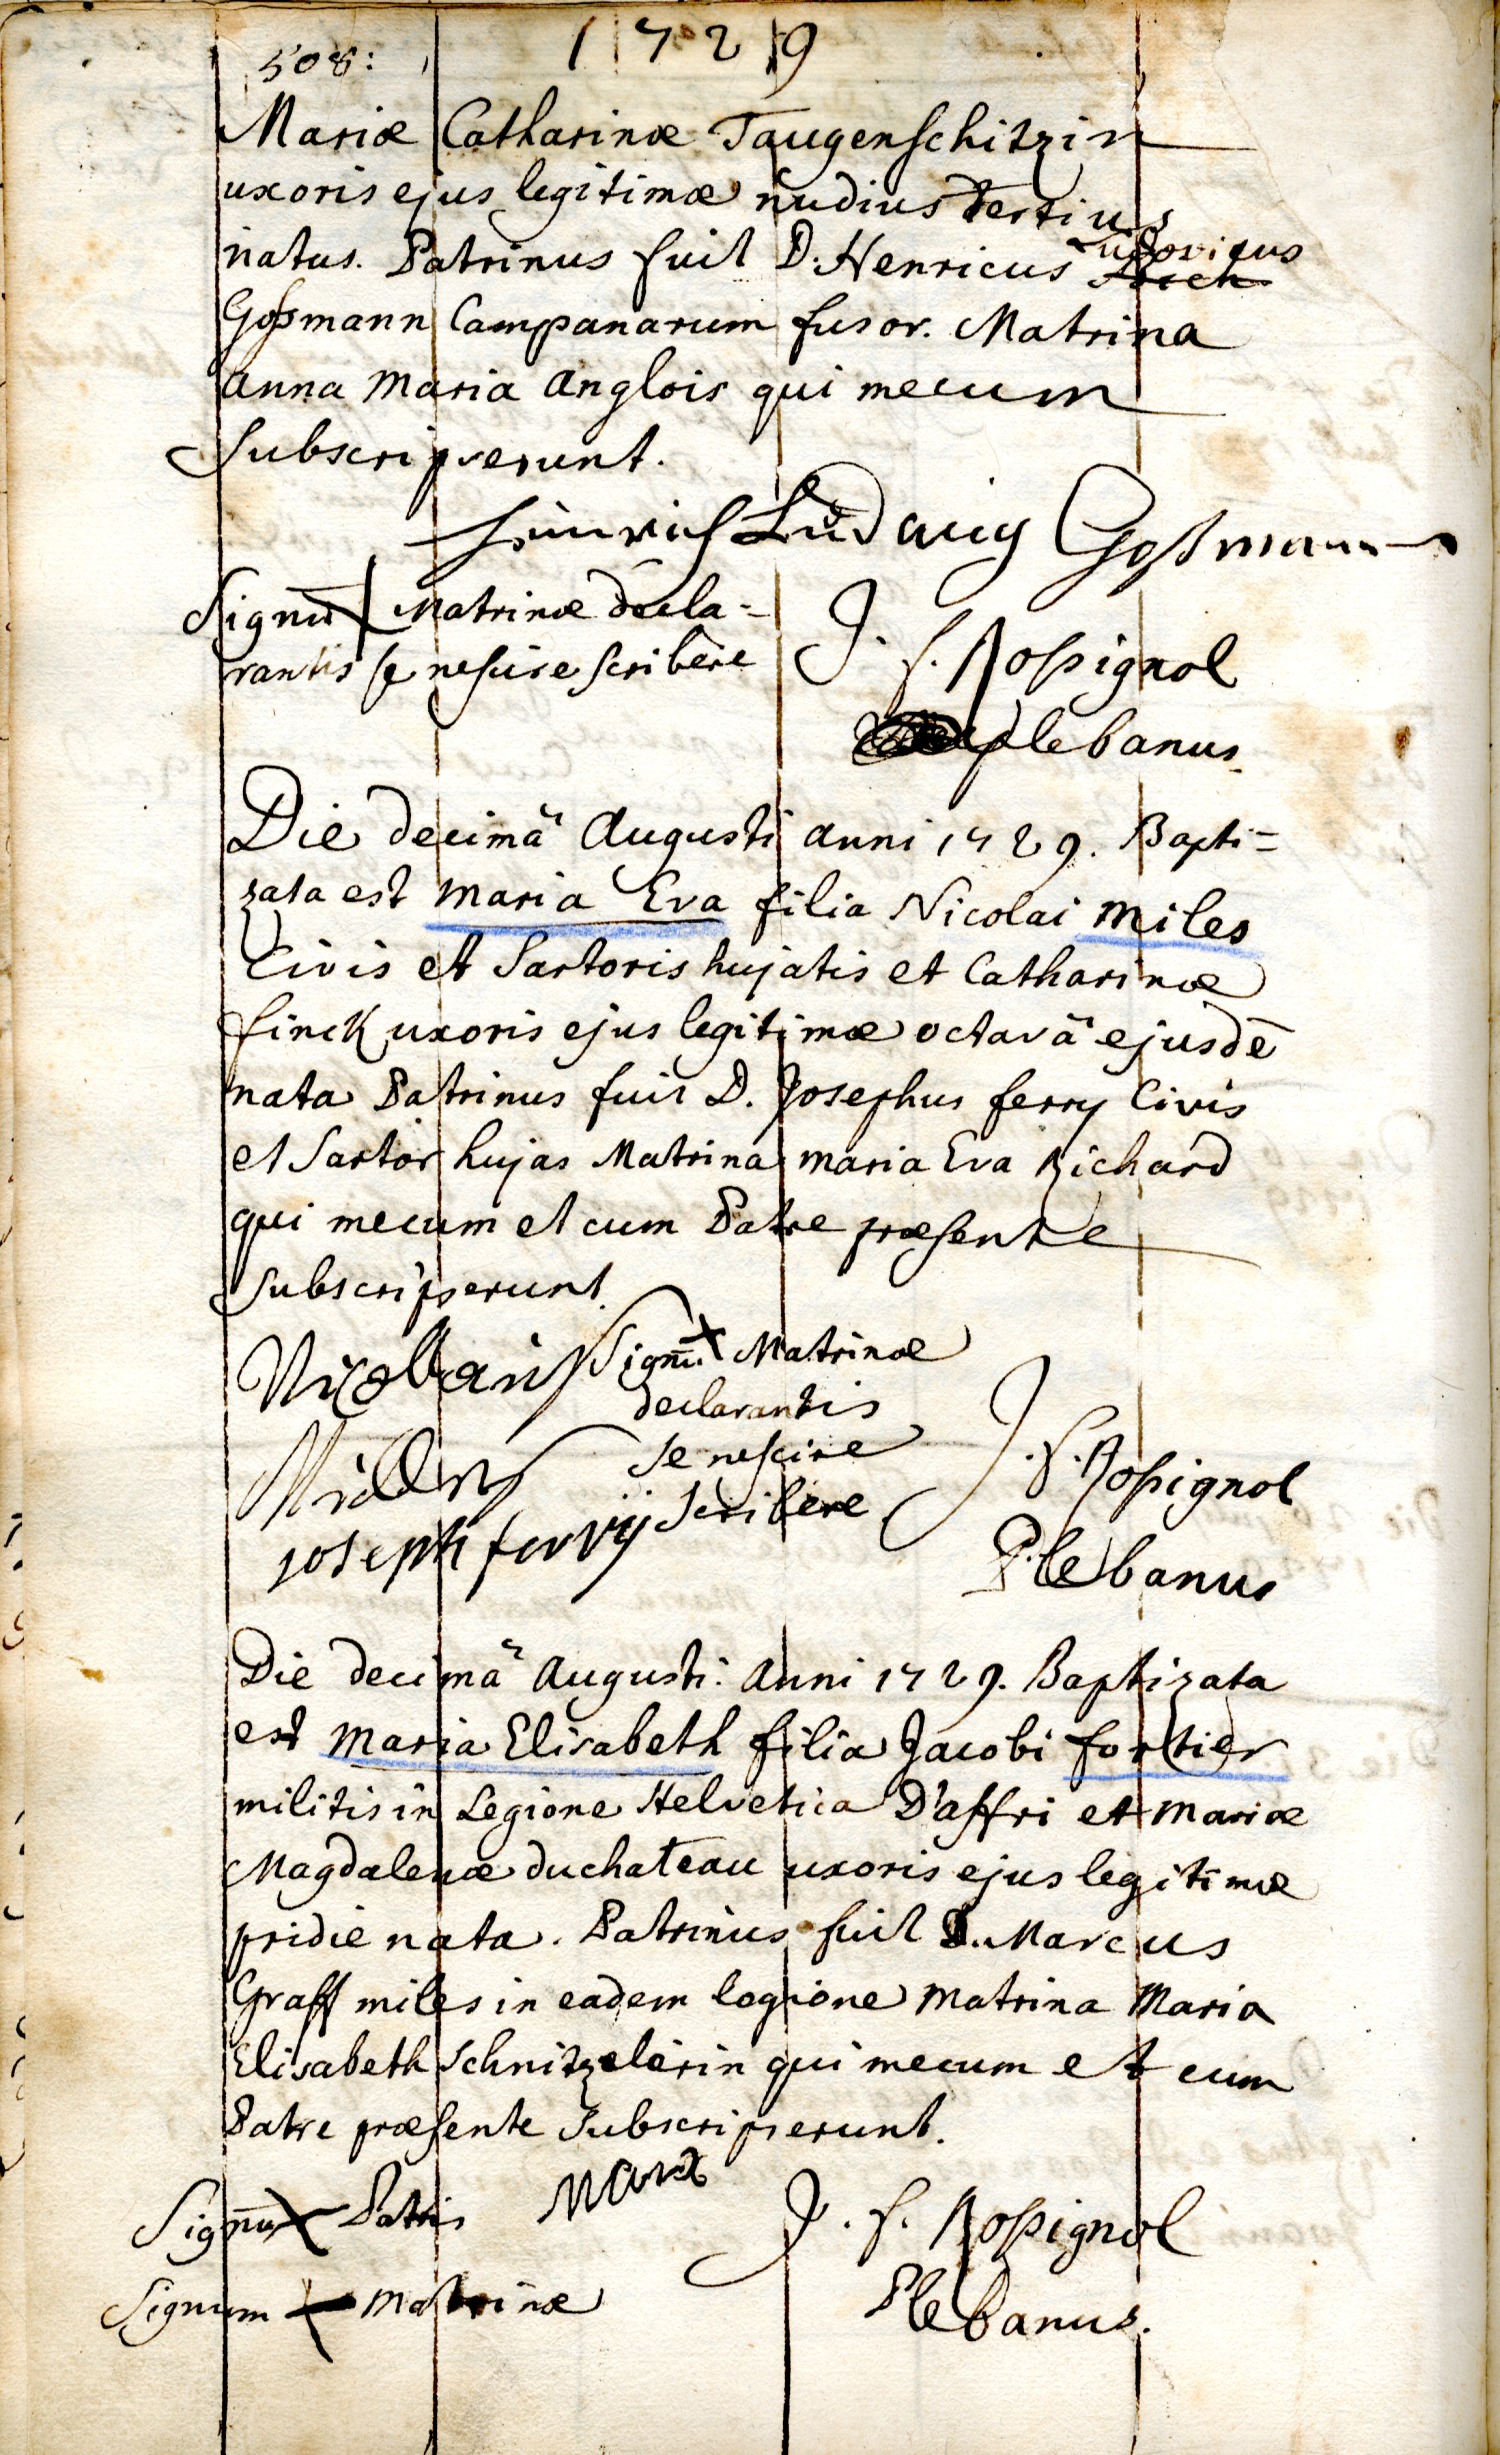 508:
1729
Mariæ Catharinæ Taugenschitzin
uxoris ejus legitimæ nudius tertius
natus. Patrinus fuit D. Henricus Ludovicus
Goßmann Campanarum fusor. Matrina
anna Maria anglois qui mecum
subscripserunt.
Heinrich Ludwig Goßmann
Signū Matrinæ decla=
rantis se nescire scribere
J. f. Roßignol
plebanus.
Die decimâ Augusti anni 1729. Bapti=
zata est Maria Eva filia Nicolai Miles
Civis et Sartoris hujatis et Catharinæ
finck uxoris ejus legitimæ octavâ ejusdē
nata Patrinus fuit D. Josephus ferry Civis
et Sartor hujas Matrina maria Eva Richard
qui mecum et cum Patre præsente
subscripserunt.
Signū Matrinæ
declarantis
se nescire
scribere
joseph ferrij
J. f. Roßignol
Plebanus
Die decimâ Augusti anni 1729. Baptizata
est Maria Elisabeth filia Jacobi fortier
militis in Legione Helvetica D'affri et Mariæ
Magdalenæ duchateau uxoris ejus legitimæ
pridie nata. Patrinus fuit D. Marcus
Graff miles in eadem legione Matrina Maria
Elisabeth Schnitzelerin qui mecum et cum
Patre præsente subscripserunt.
Signū Patris
Marx
Signum Matrinæ
J. f. Roßignol
Plebanus.